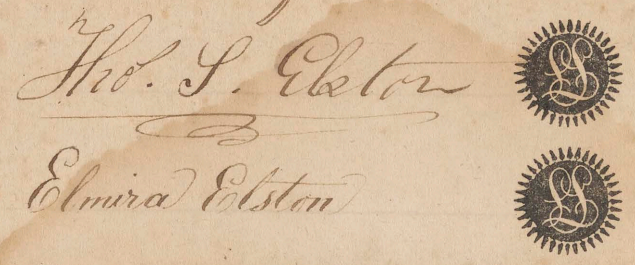 Thos. S. Elston LS
Elmira Elston LS